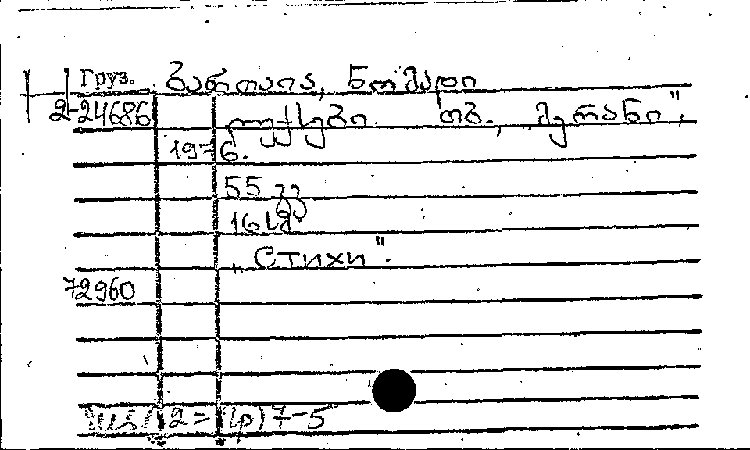 Груз. ბართაია, ნომადი
2-24686 ლექსები თბ., „მერანი",
1976.
55 გვ
16 სმ
„Стихи".
72960
2= 7-5